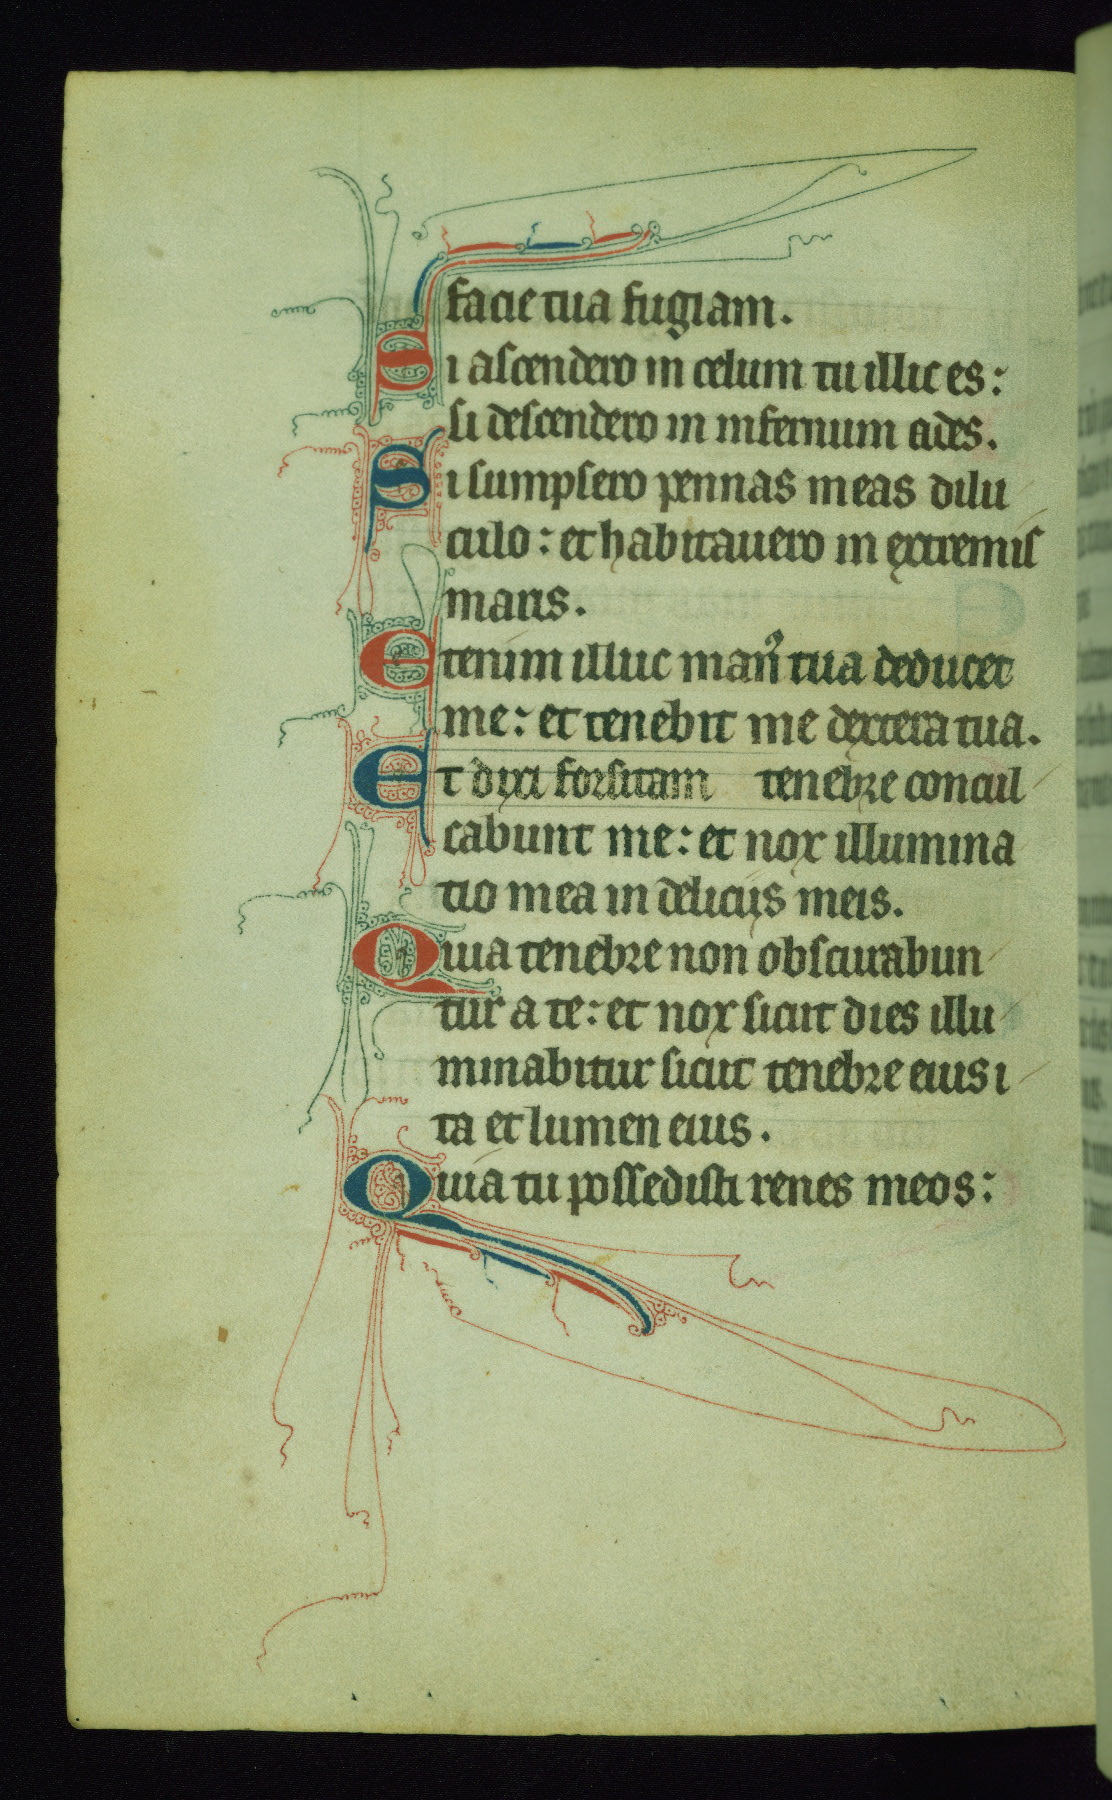 facie tua fugiam.
Si ascendero in celum tu illic es:
si descendero in infernum ades.
Si sumpsero pennas meas dilu
culo: et habitauero in extremis
maris.
Etenim illuc man᷒ tua deducet
me: et tenebit me dextera tua.
Et dixi forsitam tenebre concul
cabunt me: et nox illumina
tio mea in deliciis meis.
Quia tenebre non obscurabun
tur a te: et nox sicut dies illu
minabitur sicut tenebre eius i
ta et lumen eius.
Quia tu possedisti renes meos: